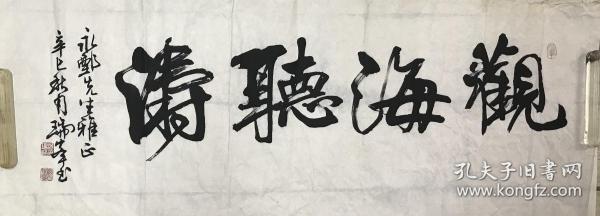 觀海聽濤
永鄭先生雅正
辛巳秋月瑞峯书
孔夫子旧书网
www.kongfz.com